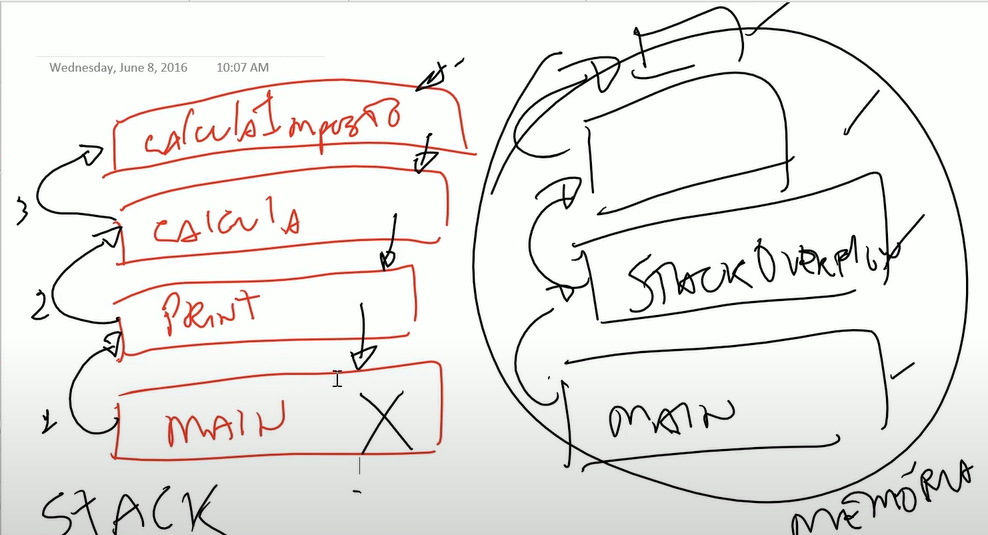 Wednesday, June 8, 2016 10:07 AM
CALCULAIMPOSTO
3
CALCULA
2
PRINT
1
MAIN
STACK
STACKOVERFLOW
MAIN
MEMÓRIA